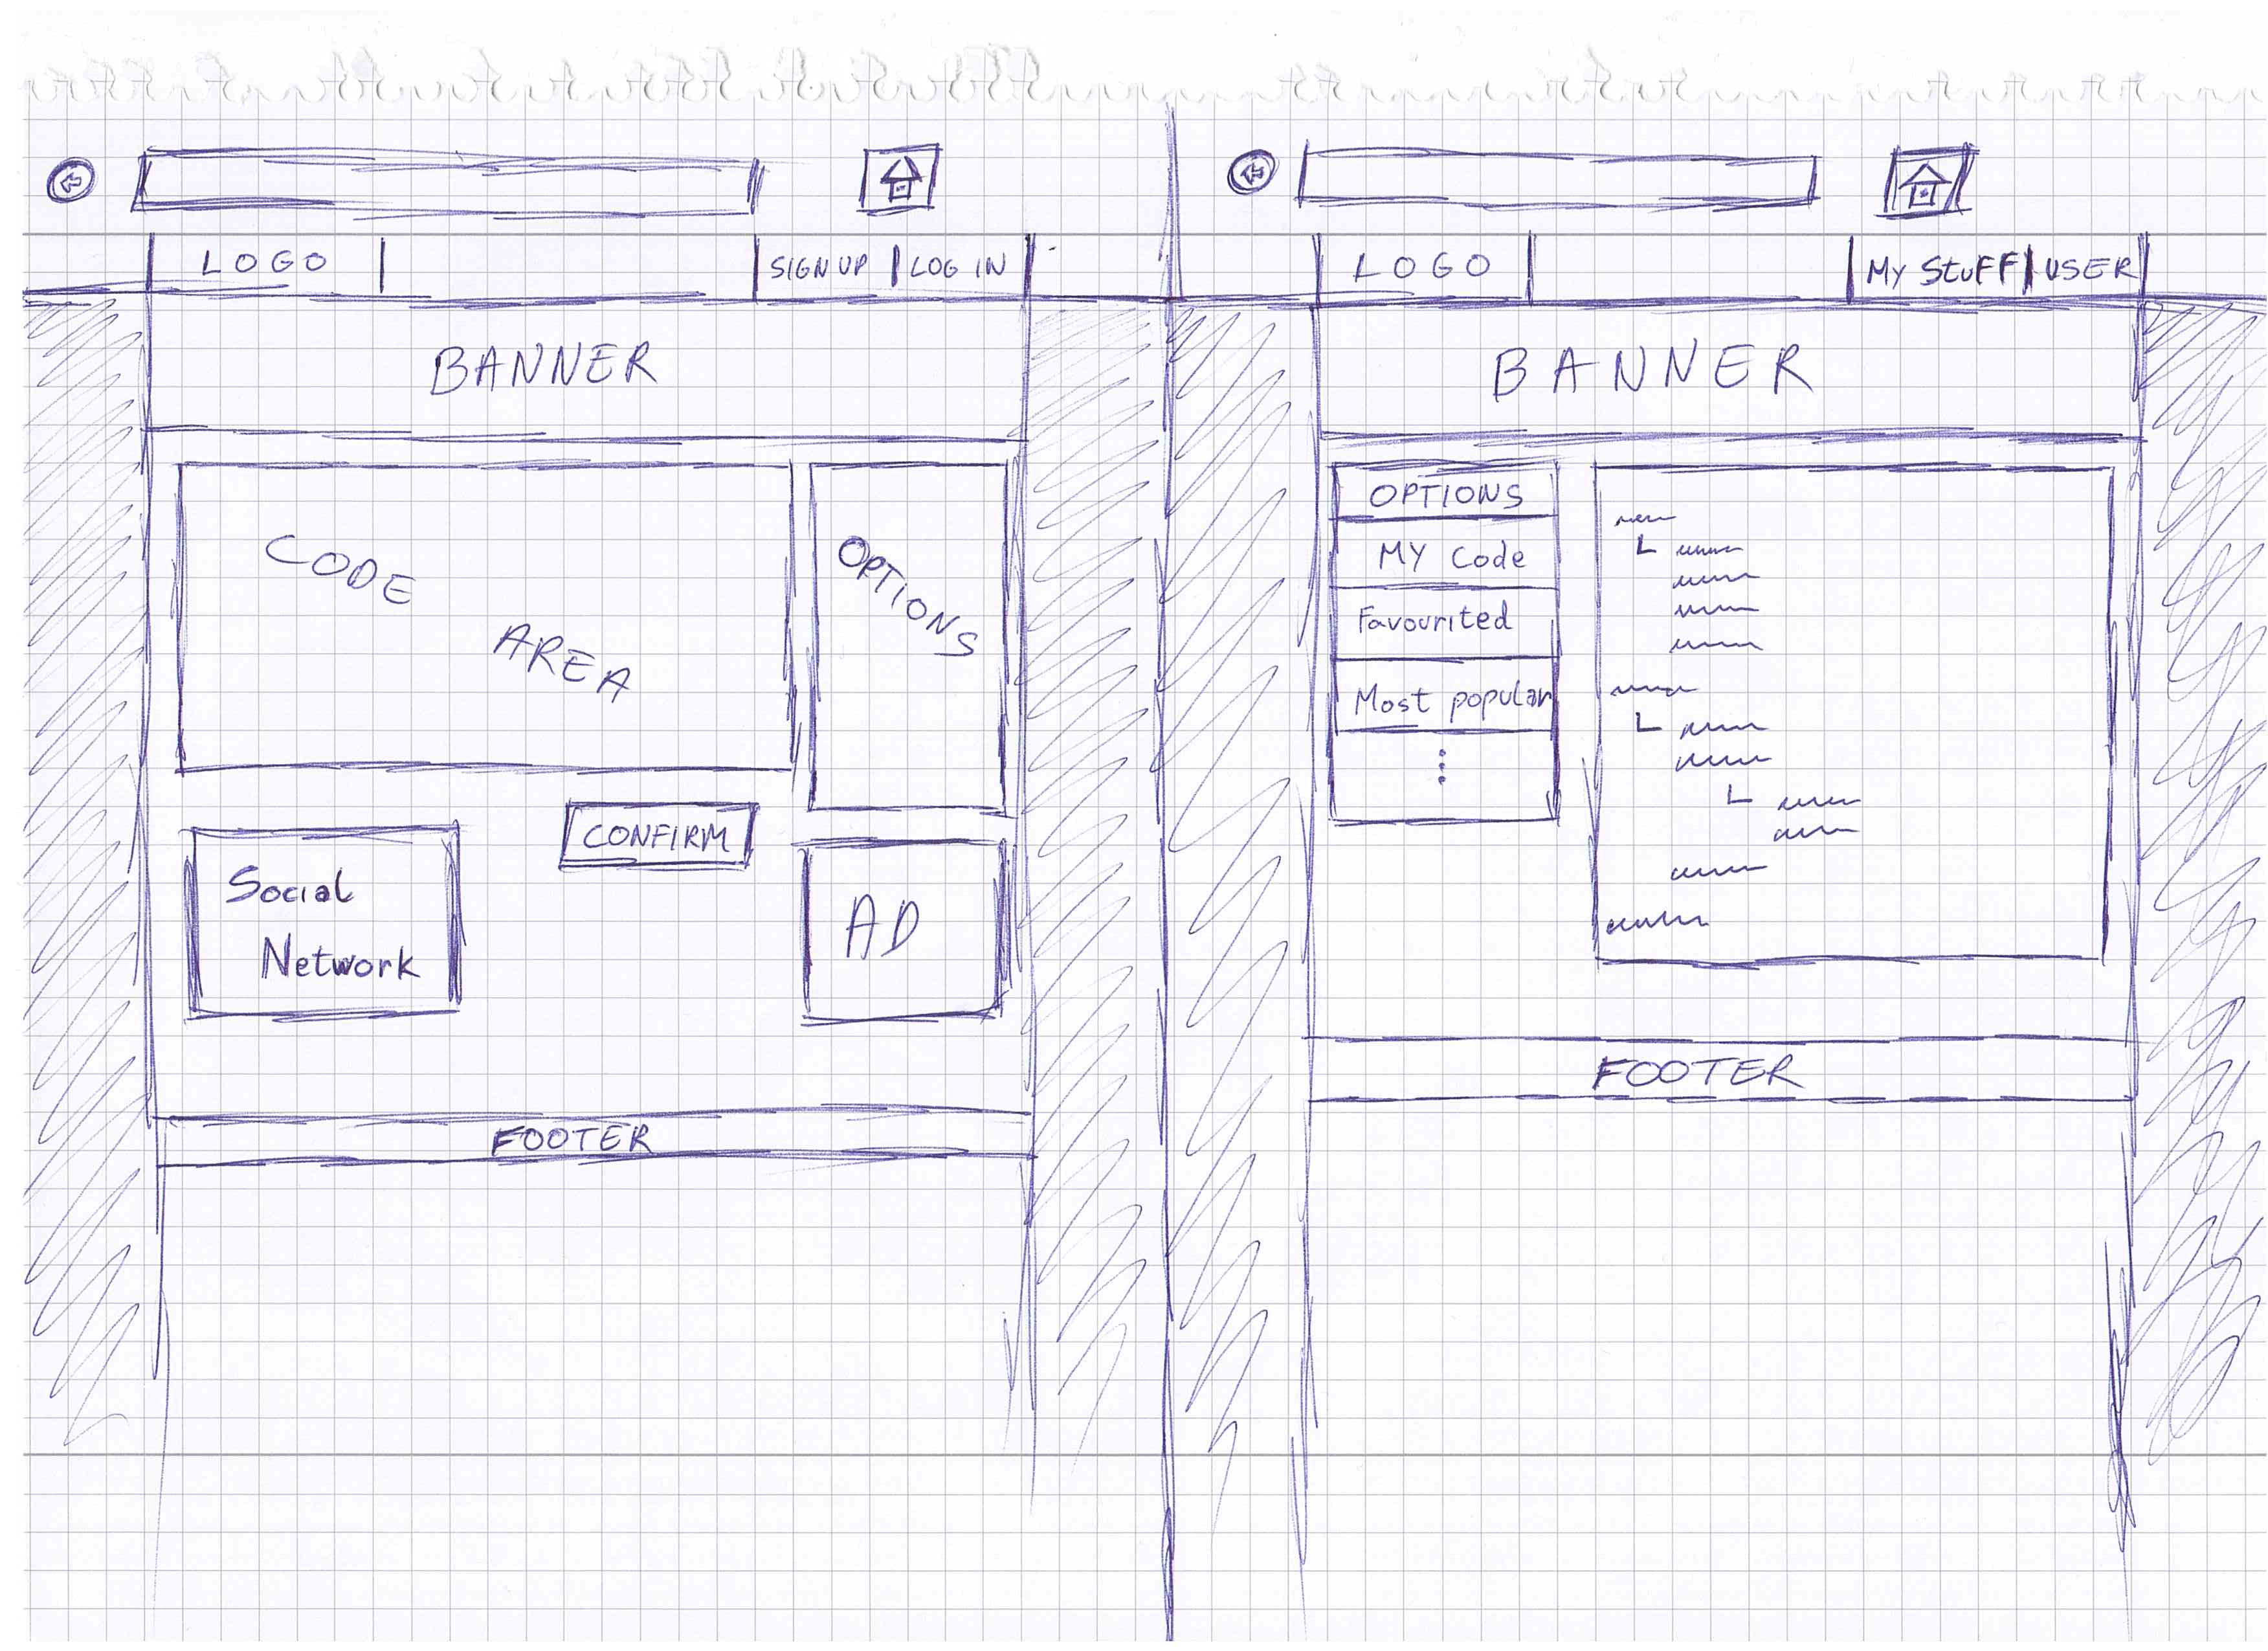 LOGO
SIGN UP
LOG IN
BANNER
CODE
AREA
OPTIONS
CONFIRM
Social
Network
AD
FOOTER
LOGO
MY StuFF
USER
BANNER
OPTIONS
MY Code
Favourited
Most popular
FOOTER